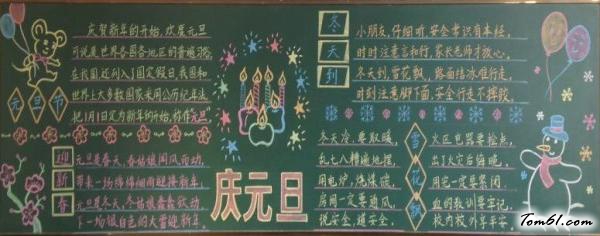 元旦节
庆贺新年的开始,欢度元旦
可说是世界各国各地区的普遍习俗,
在我国还列入了国定假日,我国和
世界上大多数国家采用公历纪年法,
把1月1定为新年的开始,称作元旦
迎新春
元旦是春天,春姑娘闻风而动,
带来一场绵绵细雨迎接新年
元旦是冬天,冬姑娘蠢蠢欲动
下一场银白色的大雪迎新年。
庆元旦
冬天到
小朋友,仔细听,安全常识自本经,
时时注意言和行,家长老师才放心,
冬天到,雪花飘,路面结冰难行走,
时刻注意脚下面,安全行走不摔跤,
冬天冷,要取暖,
乱七八糟遍地摆,
用电炉,烧煤碳,
房间一定要通风,
说安全,道安全,
雪花飘
火区电器要检点,
出了火灾后悔晚,
用完一定要紧闭,
血的教训要牢记,
校内校外享平安,
Tom61.com